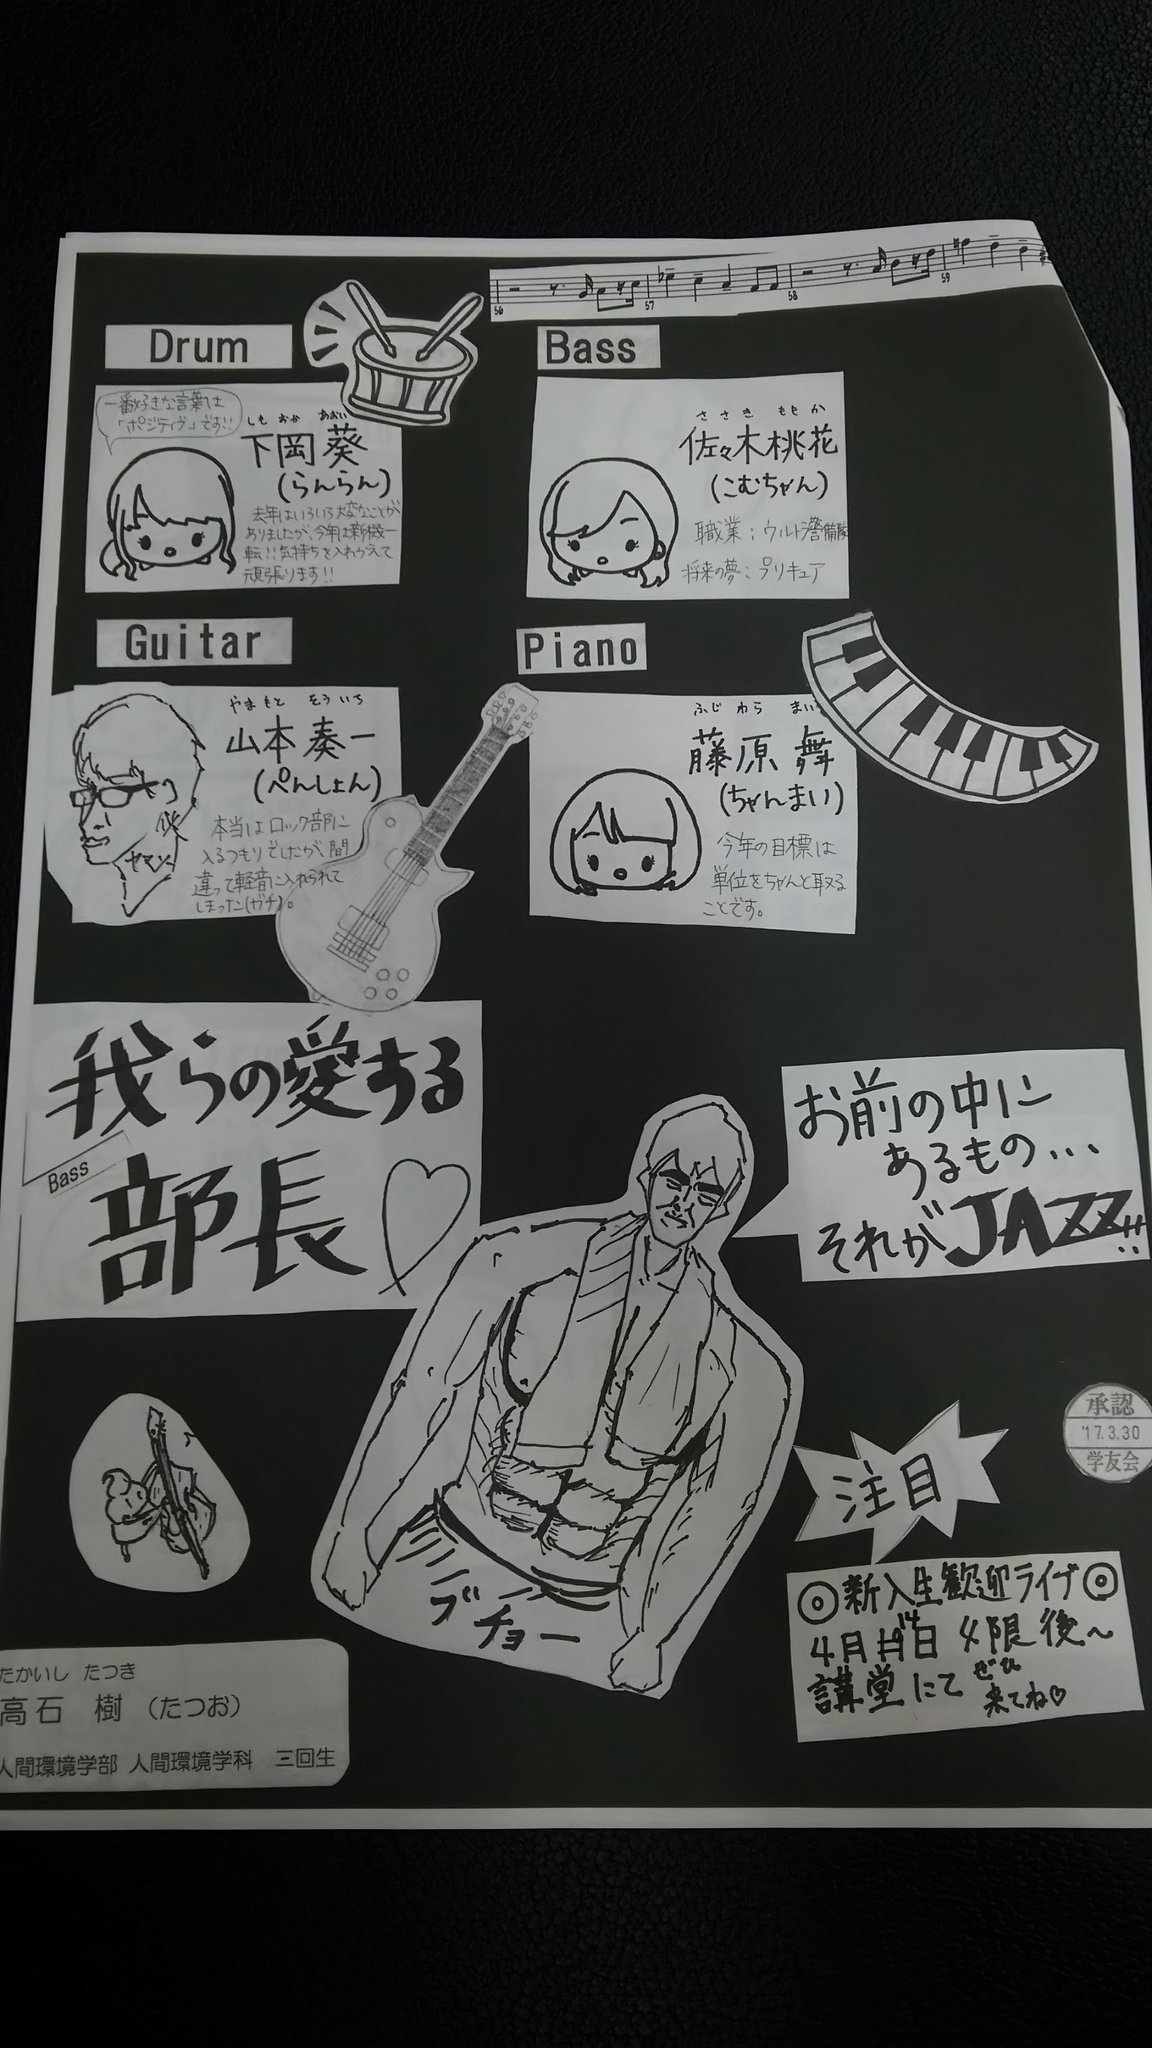 56
57
58
59
Drum
一番好きな言葉は
「ポジティヴ」です!!
しも おか あおい
下岡葵
(らんらん)
去年はいろいろ大変なことが
ありましたが、今年は新機一
転!!気持ちを入れかえて
頑張ります!!
Bass
ささき ももか
佐々木桃花
(こむちゃん)
職業:ウルトラ警備隊
将来の夢:プリキュア
Guitar
やまもと そういち
山本奏一
(ぺんしょん)
本当はロック部に
入るつもりでしたが、間
違って軽音に入れられて
しまった(ガチ)。
Piano
ふじ わら まい
藤原舞
(ちゃんまい)
今年の目標は
単位をちゃんと取る
ことです。
我らの愛する
部長
Bass
お前の中に
あるもの...
それがJAZZ!!
ブチョー
承認
'17.3.30
学友会
注目
◎新入生歓迎ライブ◎
4月14日 4限後~
講堂にて ぜひ
来てね♡
たかいし たつき
高石 樹(たつお)
人間環境学部 人間環境学科 三回生